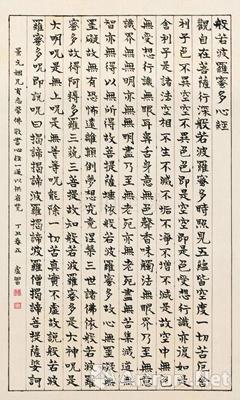 般若波羅蜜多心經
觀自在菩薩行深般若波羅蜜多時照見五蘊皆空度一切苦厄舍
利子色不異空空不異色色即是空空即是色受想行識亦復如是
舍利子是諸法空相不生不滅不垢不淨不增不減是故空中無色
無受想行識無眼耳鼻舌身意無色聲香味觸法無眼界乃至無意
識界無無明亦無無明盡乃至無老死亦無老死盡無苦集滅道無
智亦無得以無所得故菩提薩埵依般若波羅蜜多故心無罣礙無
罣礙故無有恐怖遠離顛倒夢想究竟涅槃三世諸佛依般若波羅
蜜多故得阿耨多羅三藐三菩提故知般若波羅蜜多是大神咒是
大明咒是無上咒是無等等咒能除一切苦真實不虛故說般若波
羅蜜多咒即說咒曰揭諦揭諦波羅揭諦波羅僧揭諦菩提薩婆訶
景文姻兄有志學佛敬書心經一通以供省覽 丁丑春